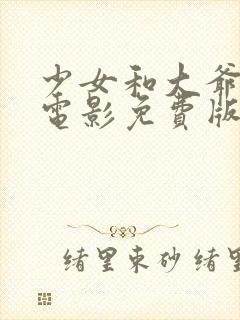 少女和大爷
電影免費版
绪里束砂绪里